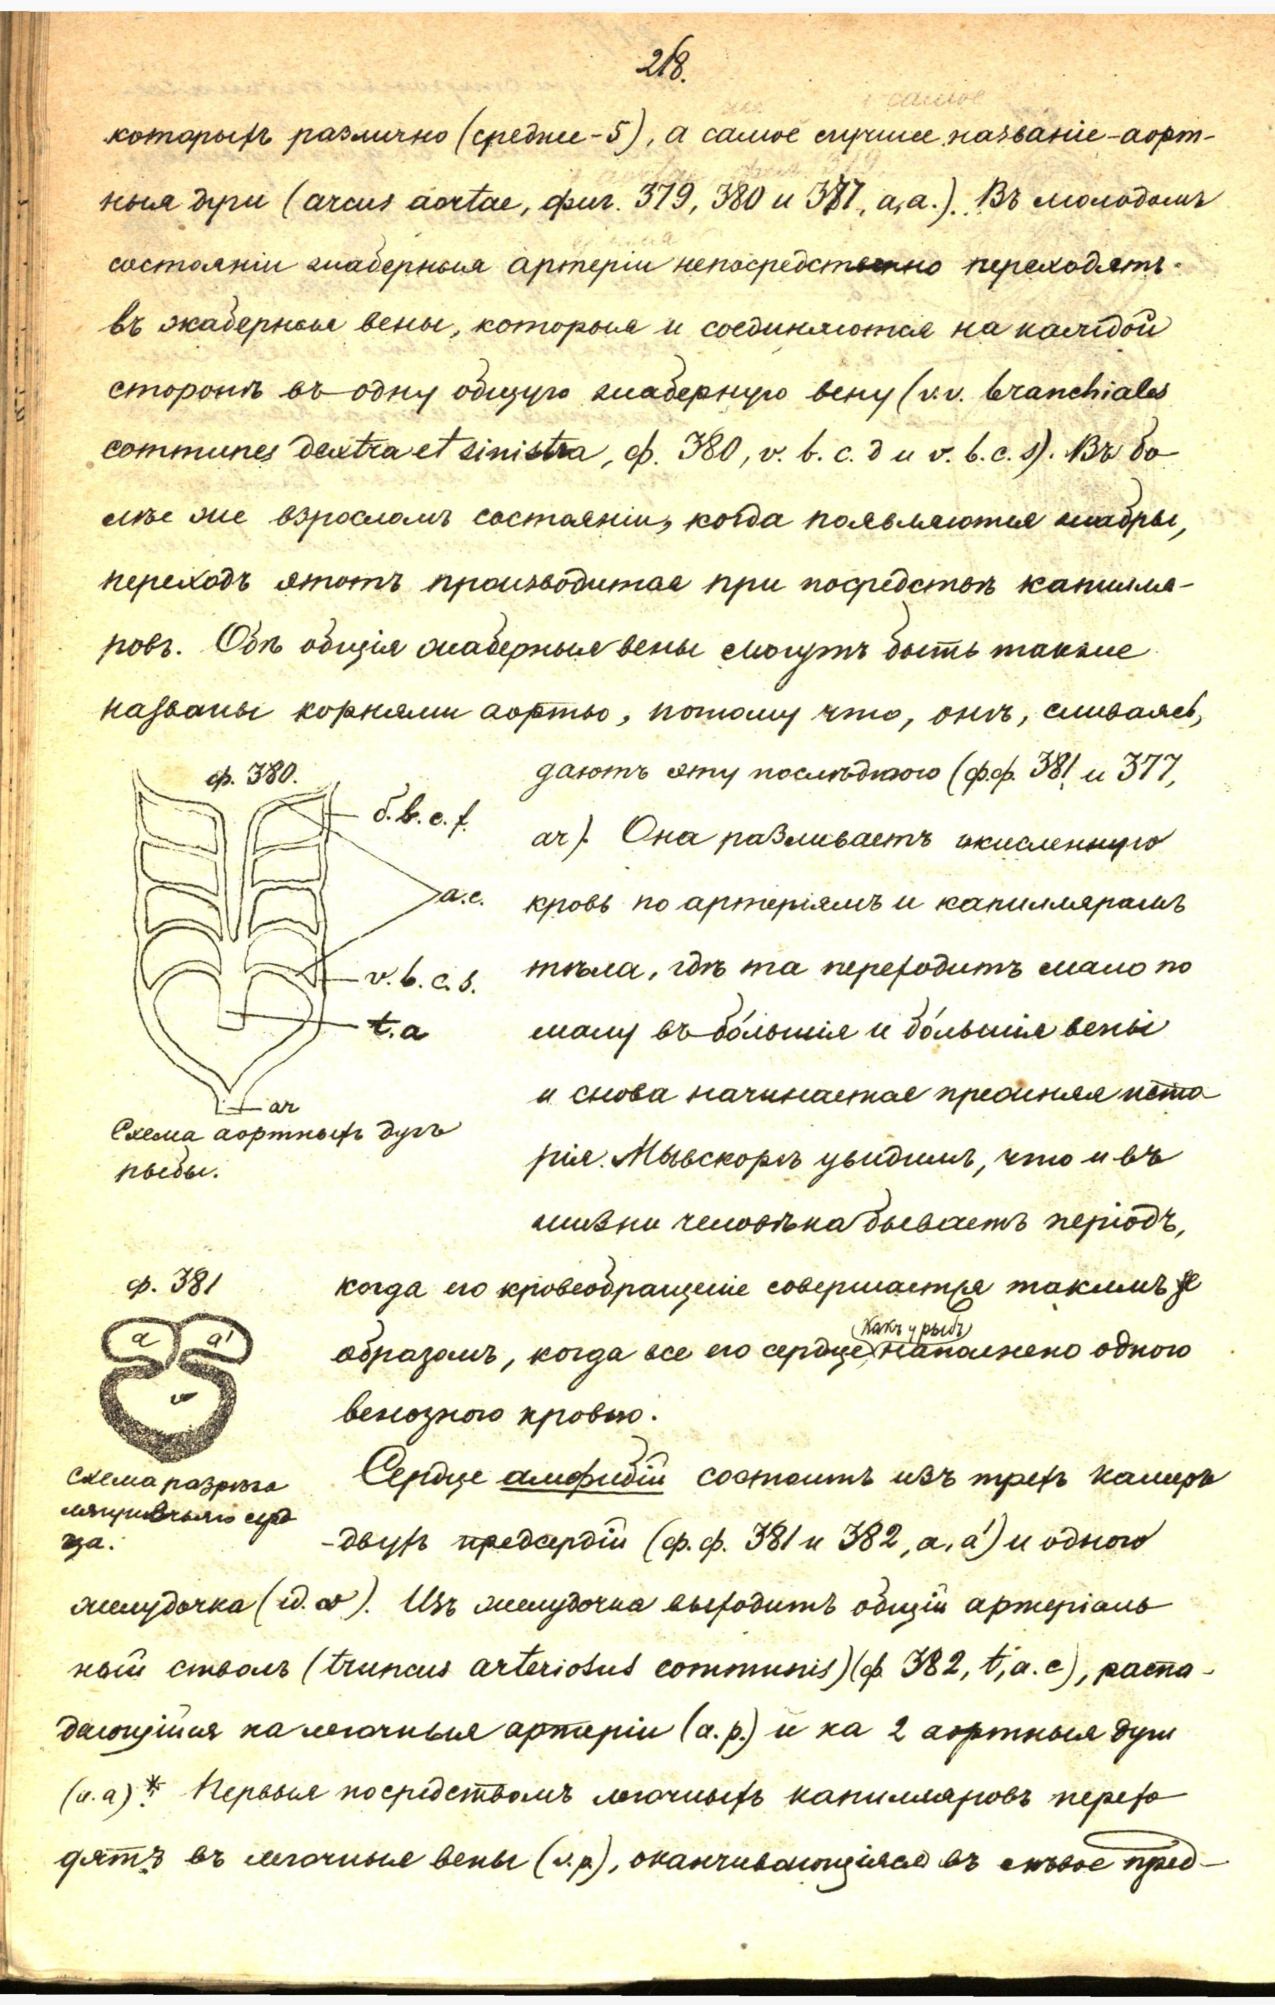 218.
которыхъ различно (средне-5), а самое лучшее названіе-аорт-
ныя дуги (arcus aortae, фиг. 379, 380 и 377, а, а.). Въ молодомъ
состояніи жаберныя артеріи непосредственно переходятъ
въ жаберныя вены, которыя и соединяются на каждой
сторонѣ въ одну общую жаберную вену (v.v. branchiales
communes dextra et sinistra, ф. 380, v. b. c. d и v. b. c. s). Въ бо-
лѣе же взросломъ состояніи, когда появляются жабры,
переходъ этотъ производится при посредствѣ капилля-
ровъ. Обѣ общія жаберныя вены могутъ быть также
названы корнями аорты, потому что, онѣ, сливаясь,
даютъ эту послѣднюю (ф.ф. 381 и 377,
ач). Она разливаетъ окисленную
кровь по артеріямъ и капиллярамъ
тѣла, гдѣ та переходитъ мало по
малу въ бо́льшія и бо́льшія вены
и снова начинается прежняя исто
рія. Мы вскорѣ увидимъ, что и въ
жизни человѣка бываетъ періодъ,
когда его кровеобращеніе совершается такимъ же
какъ у рыбъ
образомъ, когда все его сердце наполнено одною
венозною кровью.
ф. 380.
б. в. c. f.
a. c.
v. b. c. s.
t. a
ач
Схема аортныхъ дугъ
рыбы.
ф. 381
a a'
v
Схема разрѣза
лягушечьяго серд
ца.
Сердце амфибій состоитъ изъ трехъ камеръ
-двухъ предсердій (ф.ф. 381 и 382, а, а') и одного
желудочка (id. v). Изъ желудочка выходитъ общій артеріаль
ный стволъ (truncus arteriosus communis) (ф 382, t, a. c), распа-
дающійся на легочныя артеріи (a. p.) и на 2 аортныя дуги
(а. а) *. Первыя посредствомъ легочныхъ капилляровъ перехо
дятъ въ легочныя вены (v. p), оканчивающіяся въ лѣвое пред-